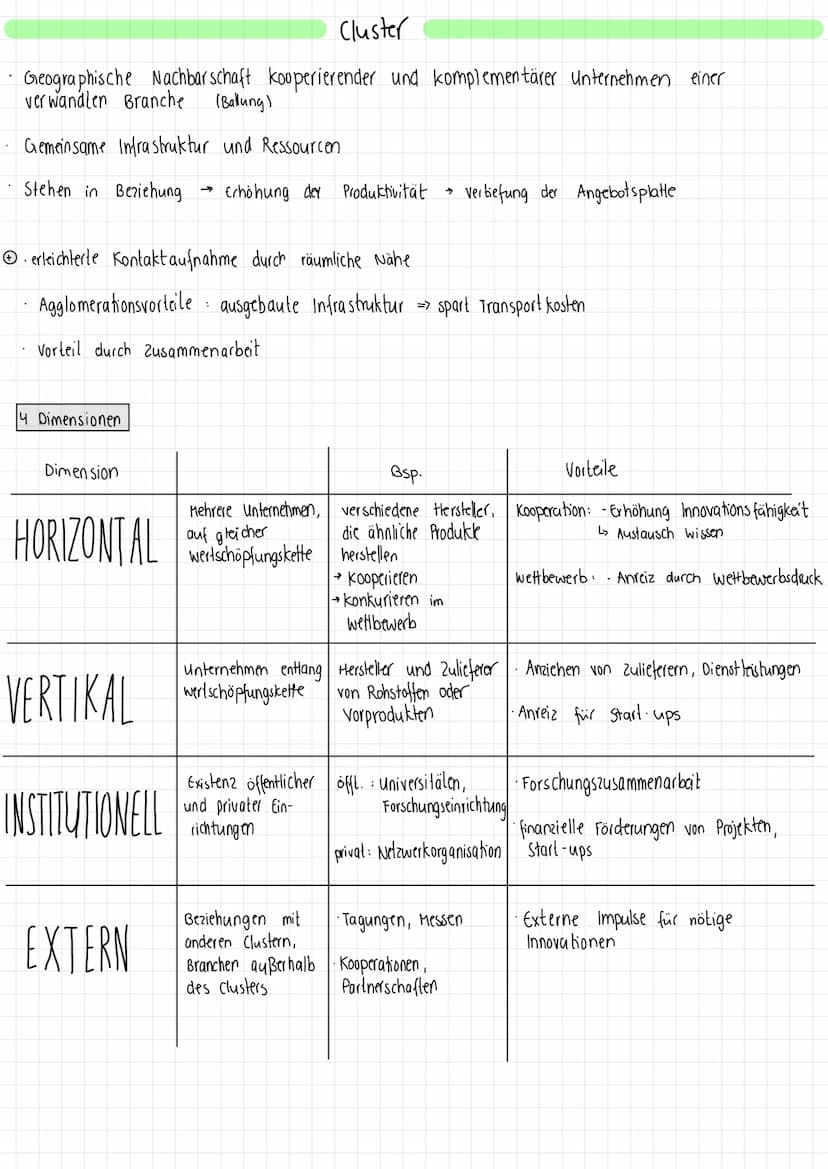 Cluster
· Geographische Nachbarschaft kooperierender und komplementärer Unternehmen einer
verwandten Branche (Ballung)
· Gemeinsame Infrastruktur und Ressourcen
· Stehen in Beziehung → Erhöhung der Produktivität → Vertiefung der Angebotsplatte
⊕ · erleichterte Kontaktaufnahme durch räumliche Nähe
· Agglomerationsvorteile : ausgebaute Infrastruktur => spart Transportkosten
· Vorteil durch Zusammenarbeit
4 Dimensionen
Dimension Bsp. Vorteile
HORIZONTAL
Mehrere Unternehmen,
auf gleicher
Wertschöpfungskette
verschiedene Hersteller,
die ähnliche Produkte
herstellen
→ kooperieren
→ konkurieren im
Wettbewerb
Kooperation: - Erhöhung Innovationsfähigkeit
↳ Austausch wissen
Wettbewerb: - Anreiz durch Wettbewerbsdruck
VERTIKAL
Unternehmen entlang
Wertschöpfungskette
Hersteller und Zulieferer
von Rohstoffen oder
Vorprodukten
· Anziehen von Zulieferern, Dienstleistungen
· Anreiz für Start-ups
INSTITUTIONELL
Existenz öffentlicher
und privater Ein-
richtungen
öffl. : Universitäten,
Forschungseinrichtung
privat: Netzwerkorganisation
· Forschungszusammenarbeit
· finanzielle Förderungen von Projekten,
Start-ups
EXTERN
Beziehungen mit
anderen Clustern,
Branchen außerhalb
des Clusters
· Tagungen, Messen
· Kooperationen,
Partnerschaften
· Externe Impulse für nötige
Innovationen